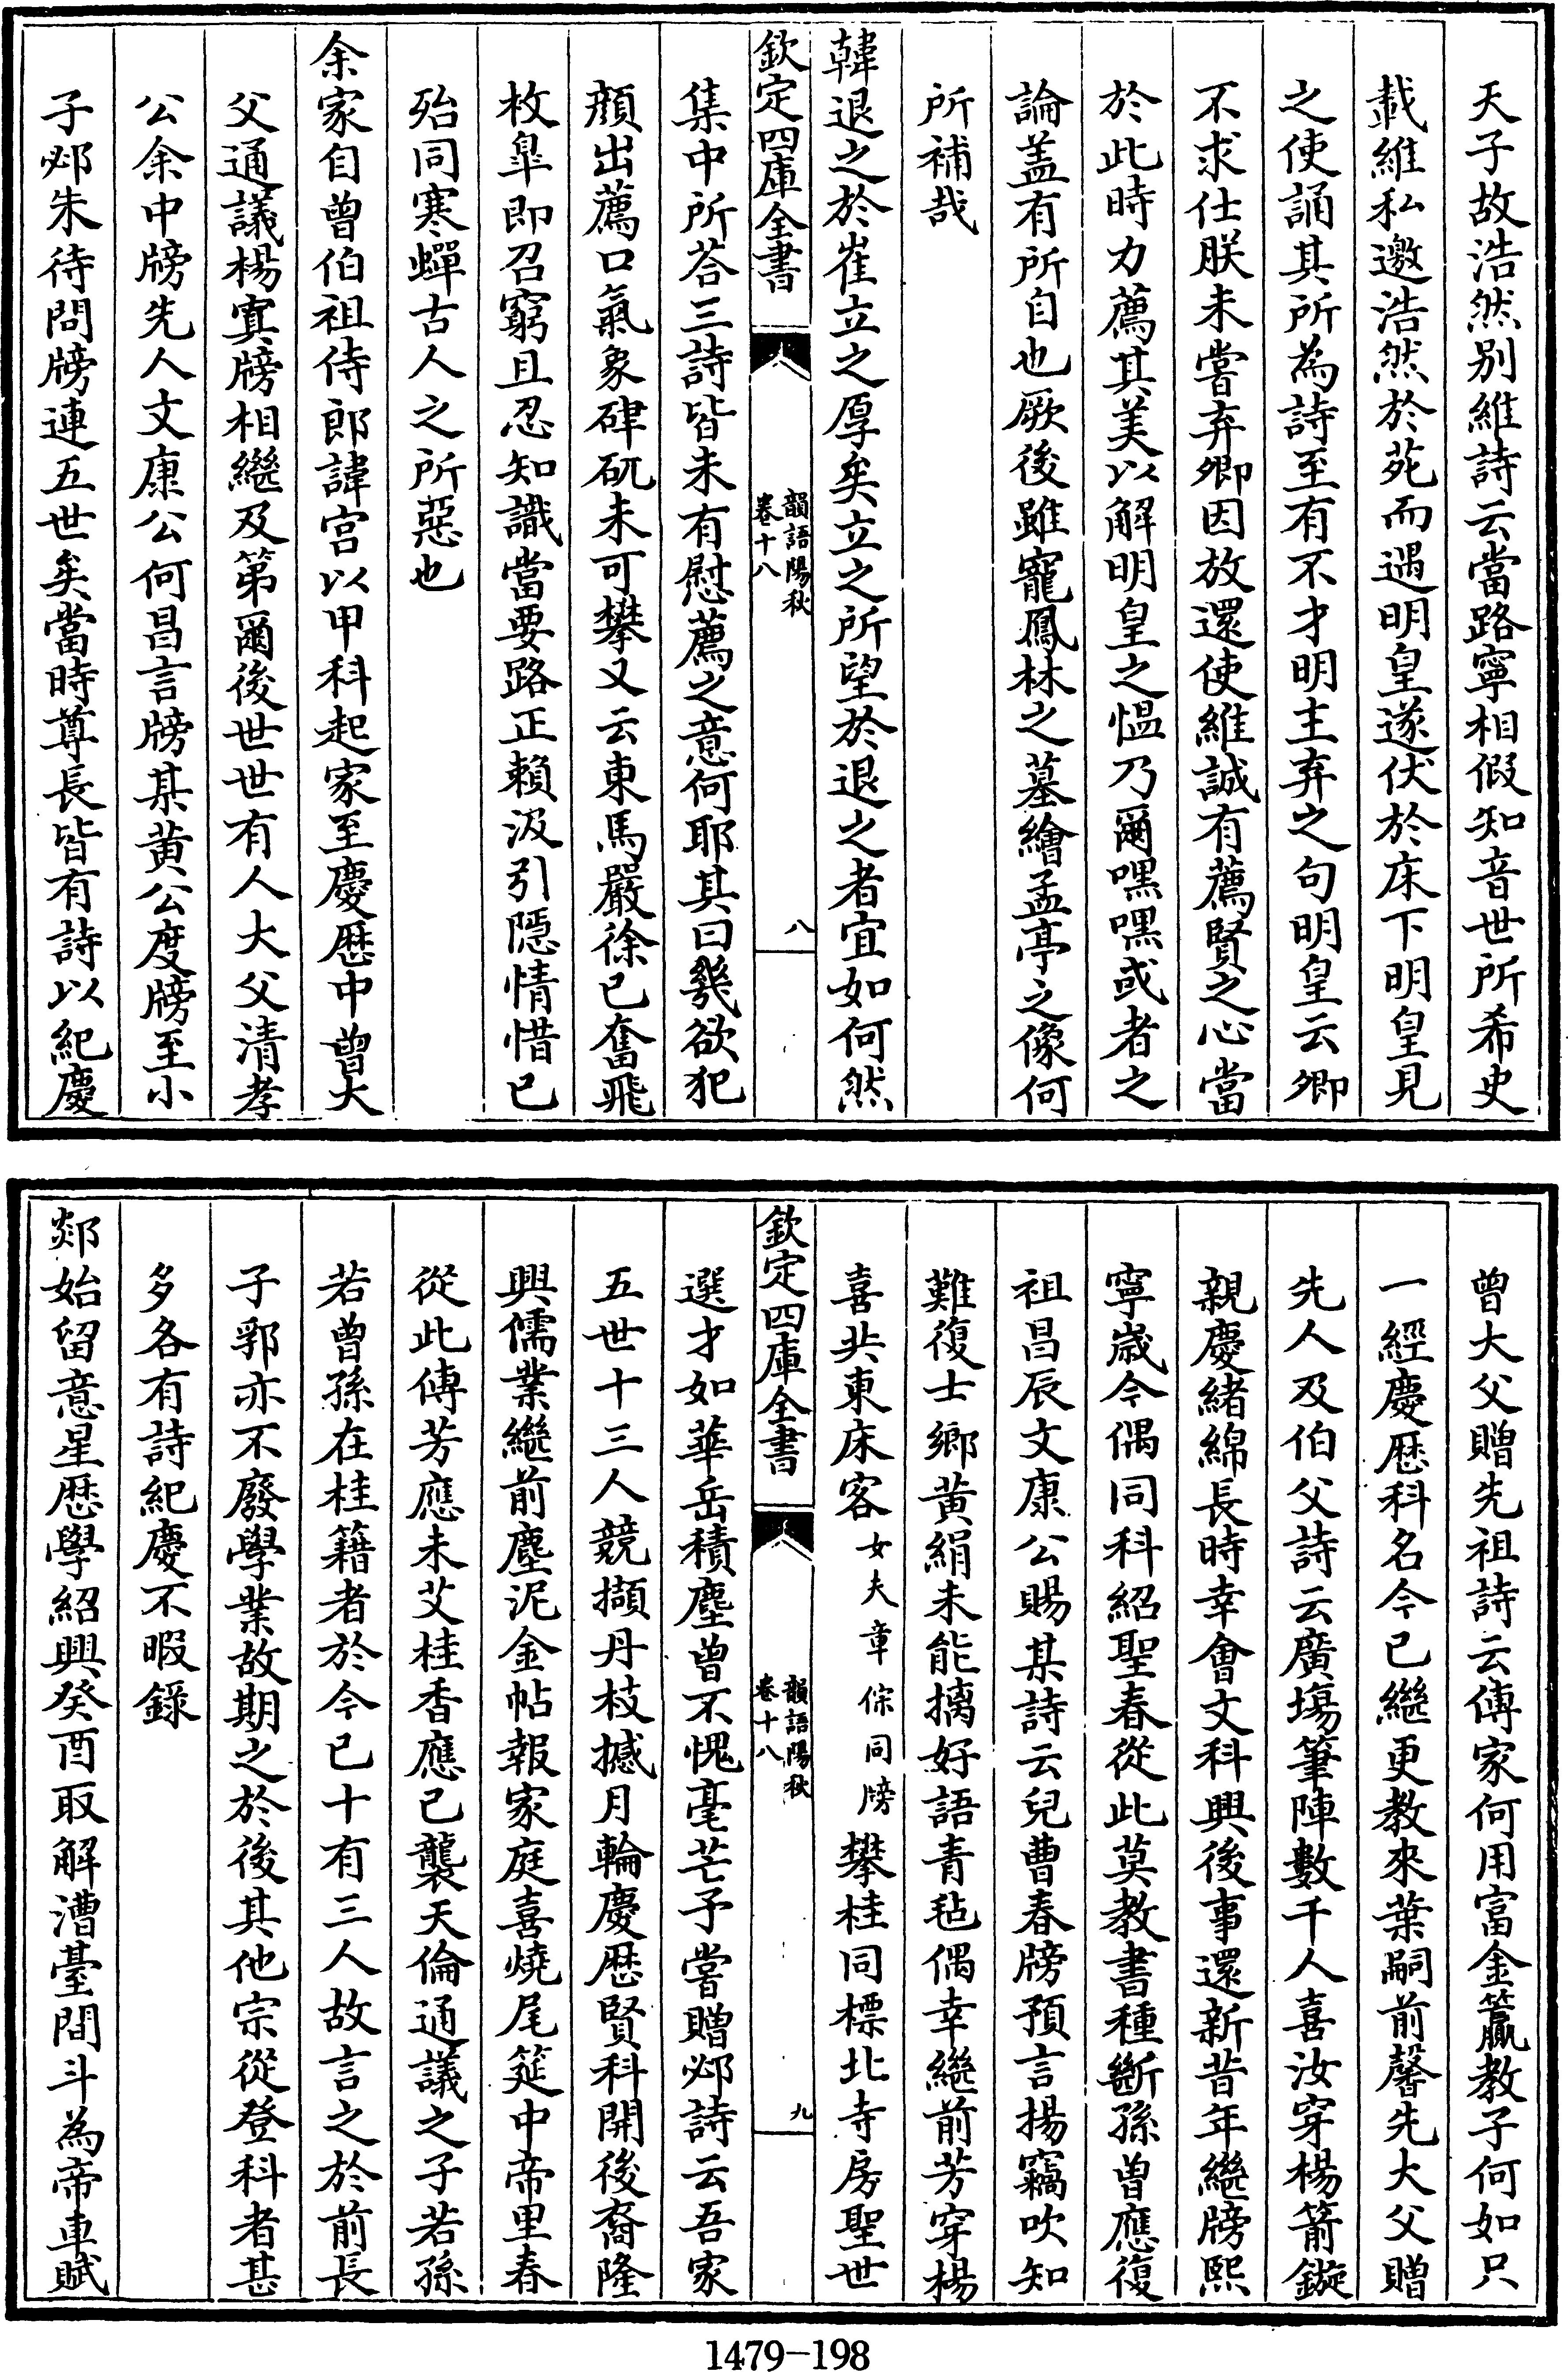 天子故浩然别維詩云當路寧相假知音世所希史
載維私邀浩然於苑而遇明皇遂伏於床下明皇見
之使誦其所為詩至有不才明主弃之句明皇云卿
不求仕朕未嘗弃卿因放還使維誠有薦賢之心當
於此時力薦其美以解明皇之愠乃爾嘿嘿或者之
論盖有所自也厥後雖寵鳳林之墓繪孟亭之像何
所補哉
韓退之於崔立之厚矣立之所望於退之者宜如何然
欽定四庫全書
韻語陽秋
卷十八
八
集中所荅三詩皆未有慰薦之意何耶其曰幾欲犯
顔出薦口氣象硉矹未可攀又云東馬嚴徐已奮飛
枚臯即召窮且忍知識當要路正賴汲引隠情惜已
殆同寒蟬古人之所惡也
余家自曾伯祖侍郎諱宫以甲科起家至慶厯中曾大
父通議楊寘牓相繼及第爾後世世有人大父清孝
公余中牓先人文康公何昌言牓某黄公度牓至小
子邲朱待問牓連五世矣當時尊長皆有詩以紀慶
曾大父贈先祖詩云傳家何用富金籯教子何如只
一經慶厯科名今已繼更教來葉嗣前馨先大父贈
先人及伯父詩云廣塲筆陣數千人喜汝穿楊箭鏃
親慶緒綿長時幸會文科興後事還新昔年繼牓熙
寧歲今偶同科紹聖春從此莫教書種斷孫曾應復
祖昌辰文康公賜某詩云兒曹春牓預言揚竊吹知
難復士鄉黄絹未能摛好語青毡偶幸繼前芳穿楊
喜共東床客女夫章倧同牓攀桂同標北寺房聖世
欽定四庫全書
韻語陽秋
卷十八
九
選才如華岳積塵曾不愧毫芒予嘗贈邲詩云吾家
五世十三人競擷丹枝撼月輪慶厯賢科開後裔隆
興儒業繼前塵泥金帖報家庭喜燒尾筵中帝里春
從此傳芳應未艾桂香應已襲天倫通議之子若孫
若曾孫在桂籍者於今已十有三人故言之於前長
子郛亦不廢學業故期之於後其他宗從登科者甚
多各有詩紀慶不暇録
郯始留意星厯學紹興癸酉取解漕臺間斗為帝車賦
1479-198